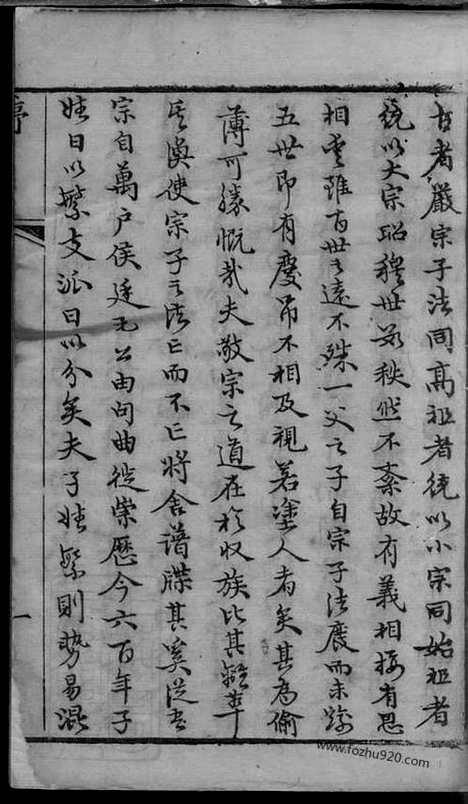 古者嚴宗子法同高祖者統以小宗同始祖者
統以大宗昭穆世數秩然不紊故有義相接有恩
相愛雖百世之遠不殊一父之子自宗子法廢而未踰
五世即有慶弔不相及視若塗人者矣其為偷
薄可勝慨哉夫敬宗之道在於收族比其離萃
其渙使宗子之法亡而不亡將舍譜牒其奚從吾
宗自萬户侯廷 公由句曲徙崇歷今六百年子
姓日以繁支派日以分矣夫子姓繁則勢易混
序
一
www.fozhu920.com